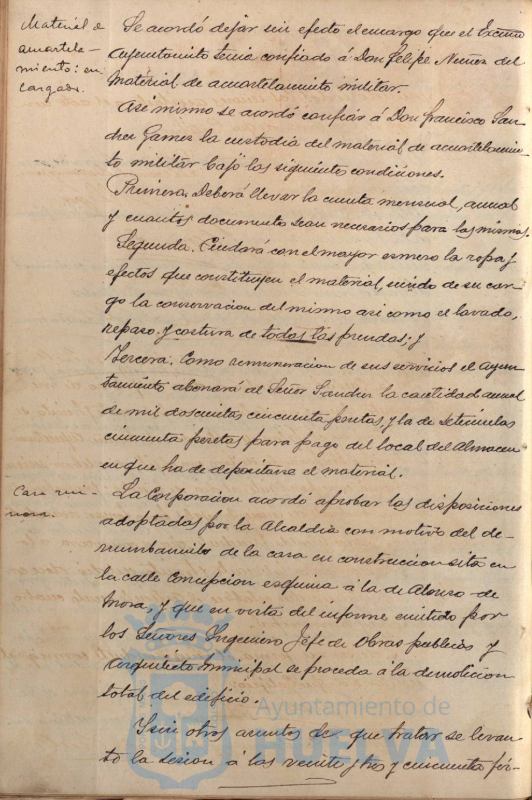 Material de
acuartela-
miento: en
cargado.
Se acordó dejar sin efecto el encargo que el Excmo
Ayuntamiento tenia confiado á Don Felipe Nuñez del
Material de acuartelamiento militar.
Asi mismo se acordó confiar á Don Francisco San-
chez Gamez la custodia del material de acuartelamien-
to militar bajo las siguientes condiciones.
Primera. Deberá llevar la cuenta mensual, anual
y cuantos documentos sean necesarios para las mismas.
Segunda. Cuidará con el mayor esmero la ropa y
efectos que constituyen el material, siendo de su car-
go la conservacion del mismo asi como el lavado,
repaso y costura de todas las prendas; y
Tercera. Como remuneracion de sus servicios el ayun-
tamiento abonará al Señor Sanchez la cantidad anual
de mil doscientas cincuenta pesetas y la de setecientas
cincuenta pesetas para pago del local del Almacen
en que ha de depositarse el material.
Casa rui-
nosa.
La Corporacion acordó aprobar las disposiciones
adoptadas por la Alcaldia con motivo del de-
rrumbamiento de la casa en construccion sita en
la calle Concepcion esquina á la de Alonso de
Mora, y que en vista del informe emitido por
los Señores Ingeniero Jefe de Obras publicas y
Arquitecto municipal se proceda á la demolicion
total del edificio.
Y sin otros asuntos de que tratar se levan-
tó la sesion á las veinte y tres y cincuenta
Ayuntamiento de
HUELVA